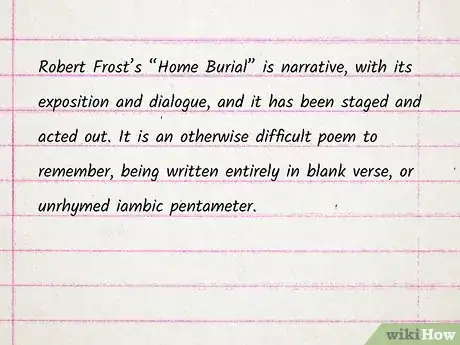 Robert Frost's “Home Burial” is narrative, with its
exposition and dialogue, and it has been staged and
acted out. It is an otherwise difficult poem to
remember, being written entirely in blank verse, or
unrhymed iambic pentameter.
wikiHow